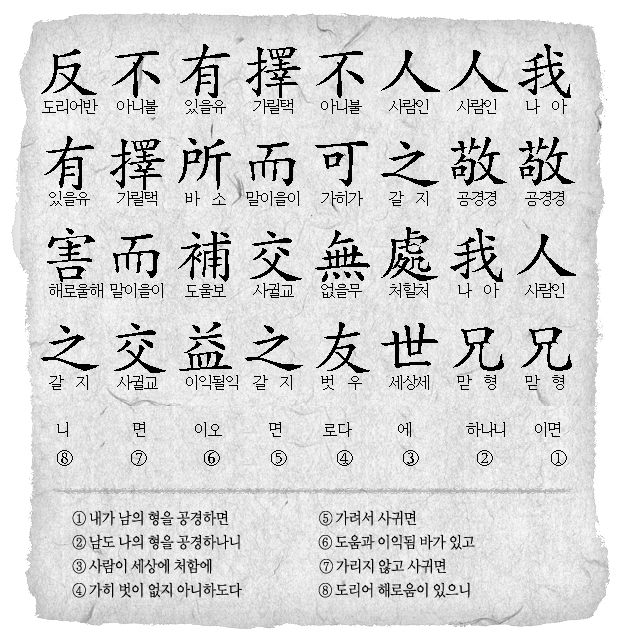 我 나 아 敬 공경경 人 사람인 兄 맏 형 이면 ①
人 사람인 敬 공경경 我 나 아 兄 맏 형 하나니 ②
人 사람인 之 갈 지 處 처할처 世 세상세 에 ③
不 아니불 可 가히가 無 없을무 友 벗 우 로다 ④
擇 가릴택 而 말이을이 交 사귈교 之 갈 지 면 ⑤
有 있을유 所 바 소 補 도울보 益 이익될익 이오 ⑥
不 아니불 擇 가릴택 而 말이을이 交 사귈교 면 ⑦
反 도리어반 有 있을유 害 해로울해 之 갈 지 니 ⑧
① 내가 남의 형을 공경하면
② 남도 나의 형을 공경하나니
③ 사람이 세상에 처함에
④ 가히 벗이 없지 아니하도다
⑤ 가려서 사귀면
⑥ 도움과 이익됨 바가 있고
⑦ 가리지 않고 사귀면
⑧ 도리어 해로움이 있으니